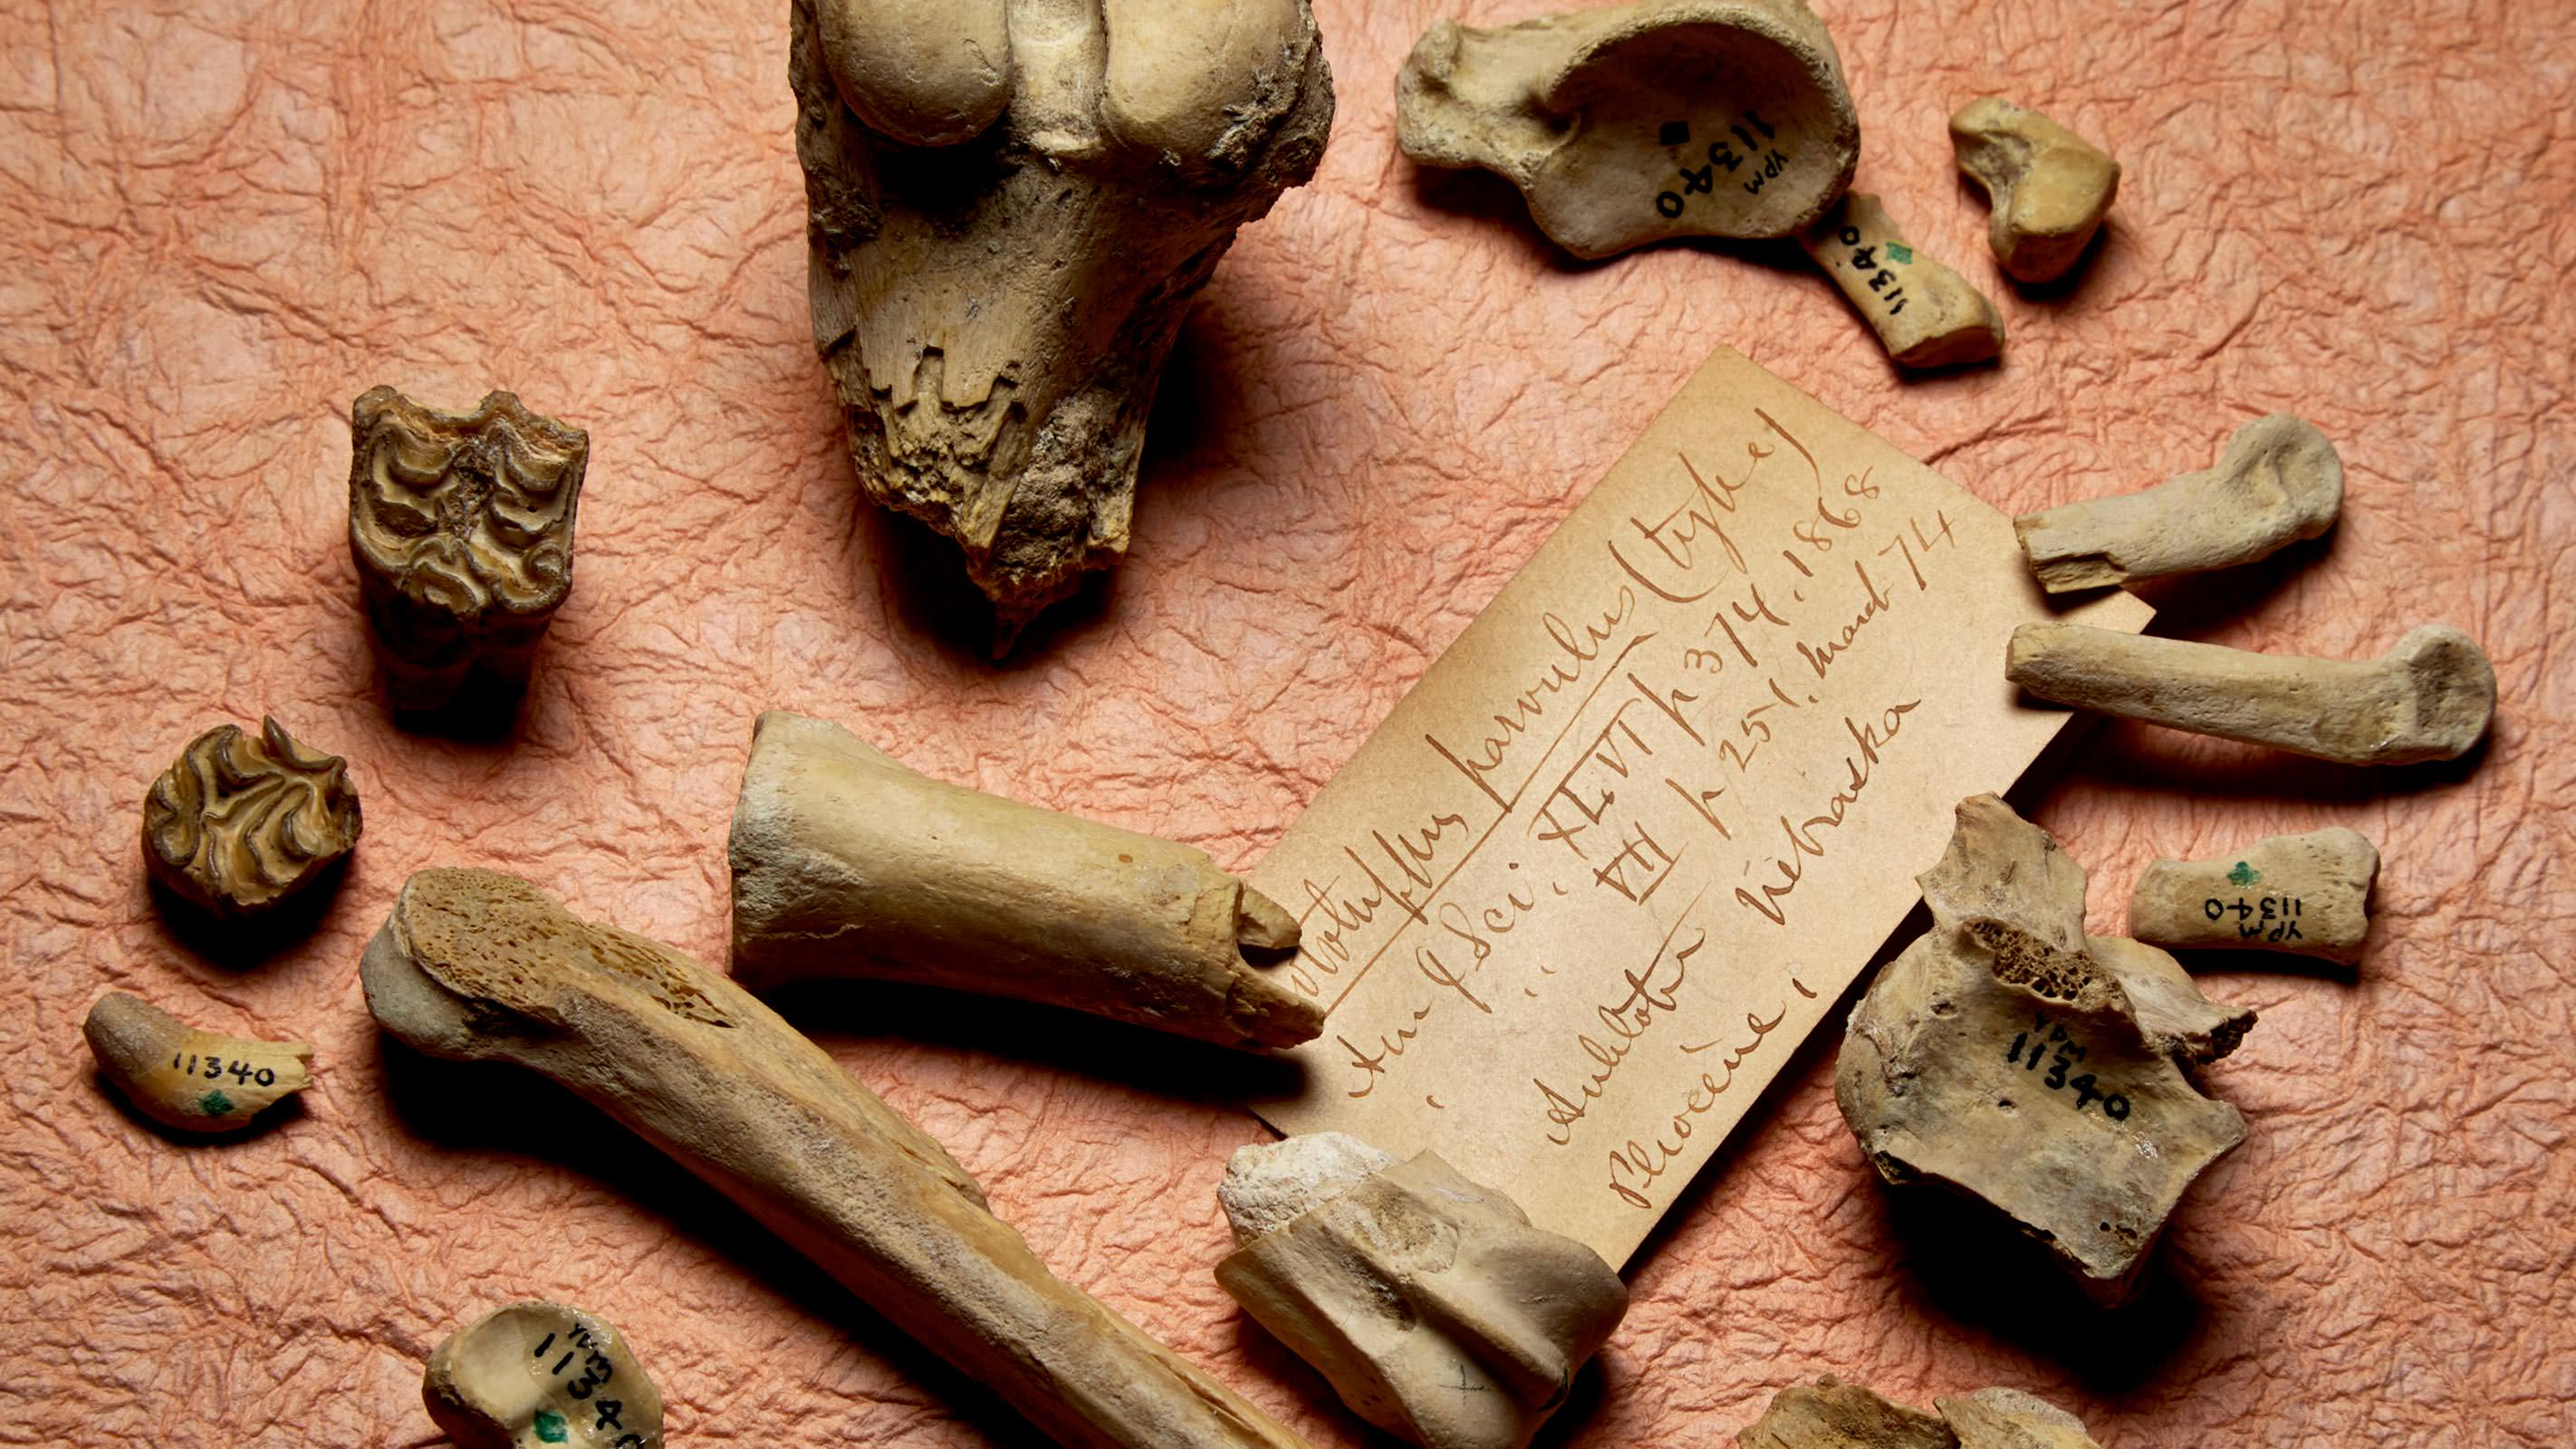 YPM
11340
11340
rotohippus parvulus (type)
Am J Sci. XLVI p 374. 1868
" " VII p 251. March 74
Antelope Nebraska
Pliocene,
YPM
11340
YPM
11340
11340
YPM
11340